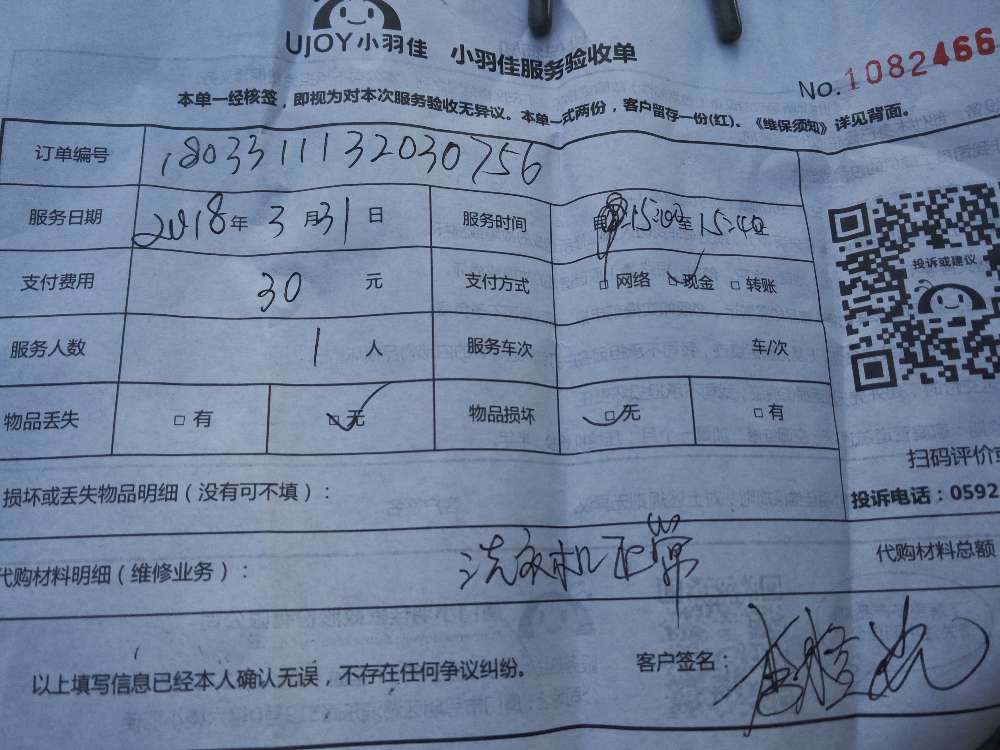 UJOY小羽佳 小羽佳服务验收单
No.1082466
本单一经核签，即视为对本次服务验收无异议。本单一式两份，客户留存一份(红)、《维保须知》详见背面。
订单编号 18033111132030756
服务日期 2018年3月31日 服务时间 15:00至15:40
支付费用 30 元 支付方式 □网络 □现金 □转账
投诉或建议
服务人数 1 人 服务车次 车/次
物品丢失 □有 □无 物品损坏 □无 □有
扫码评价
损坏或丢失物品明细（没有可不填）：
投诉电话：0592
代购材料明细（维修业务）： 洗衣机正常 代购材料总额
以上填写信息已经本人确认无误，不存在任何争议纠纷。 客户签名：